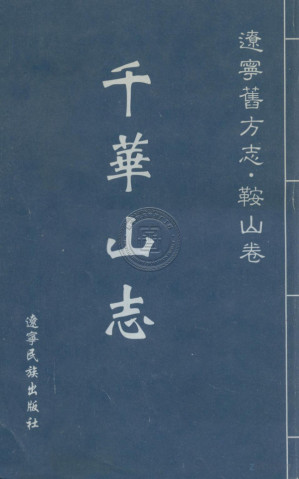 遼寧舊方志·鞍山卷
千華山志
遼寧民族出版社